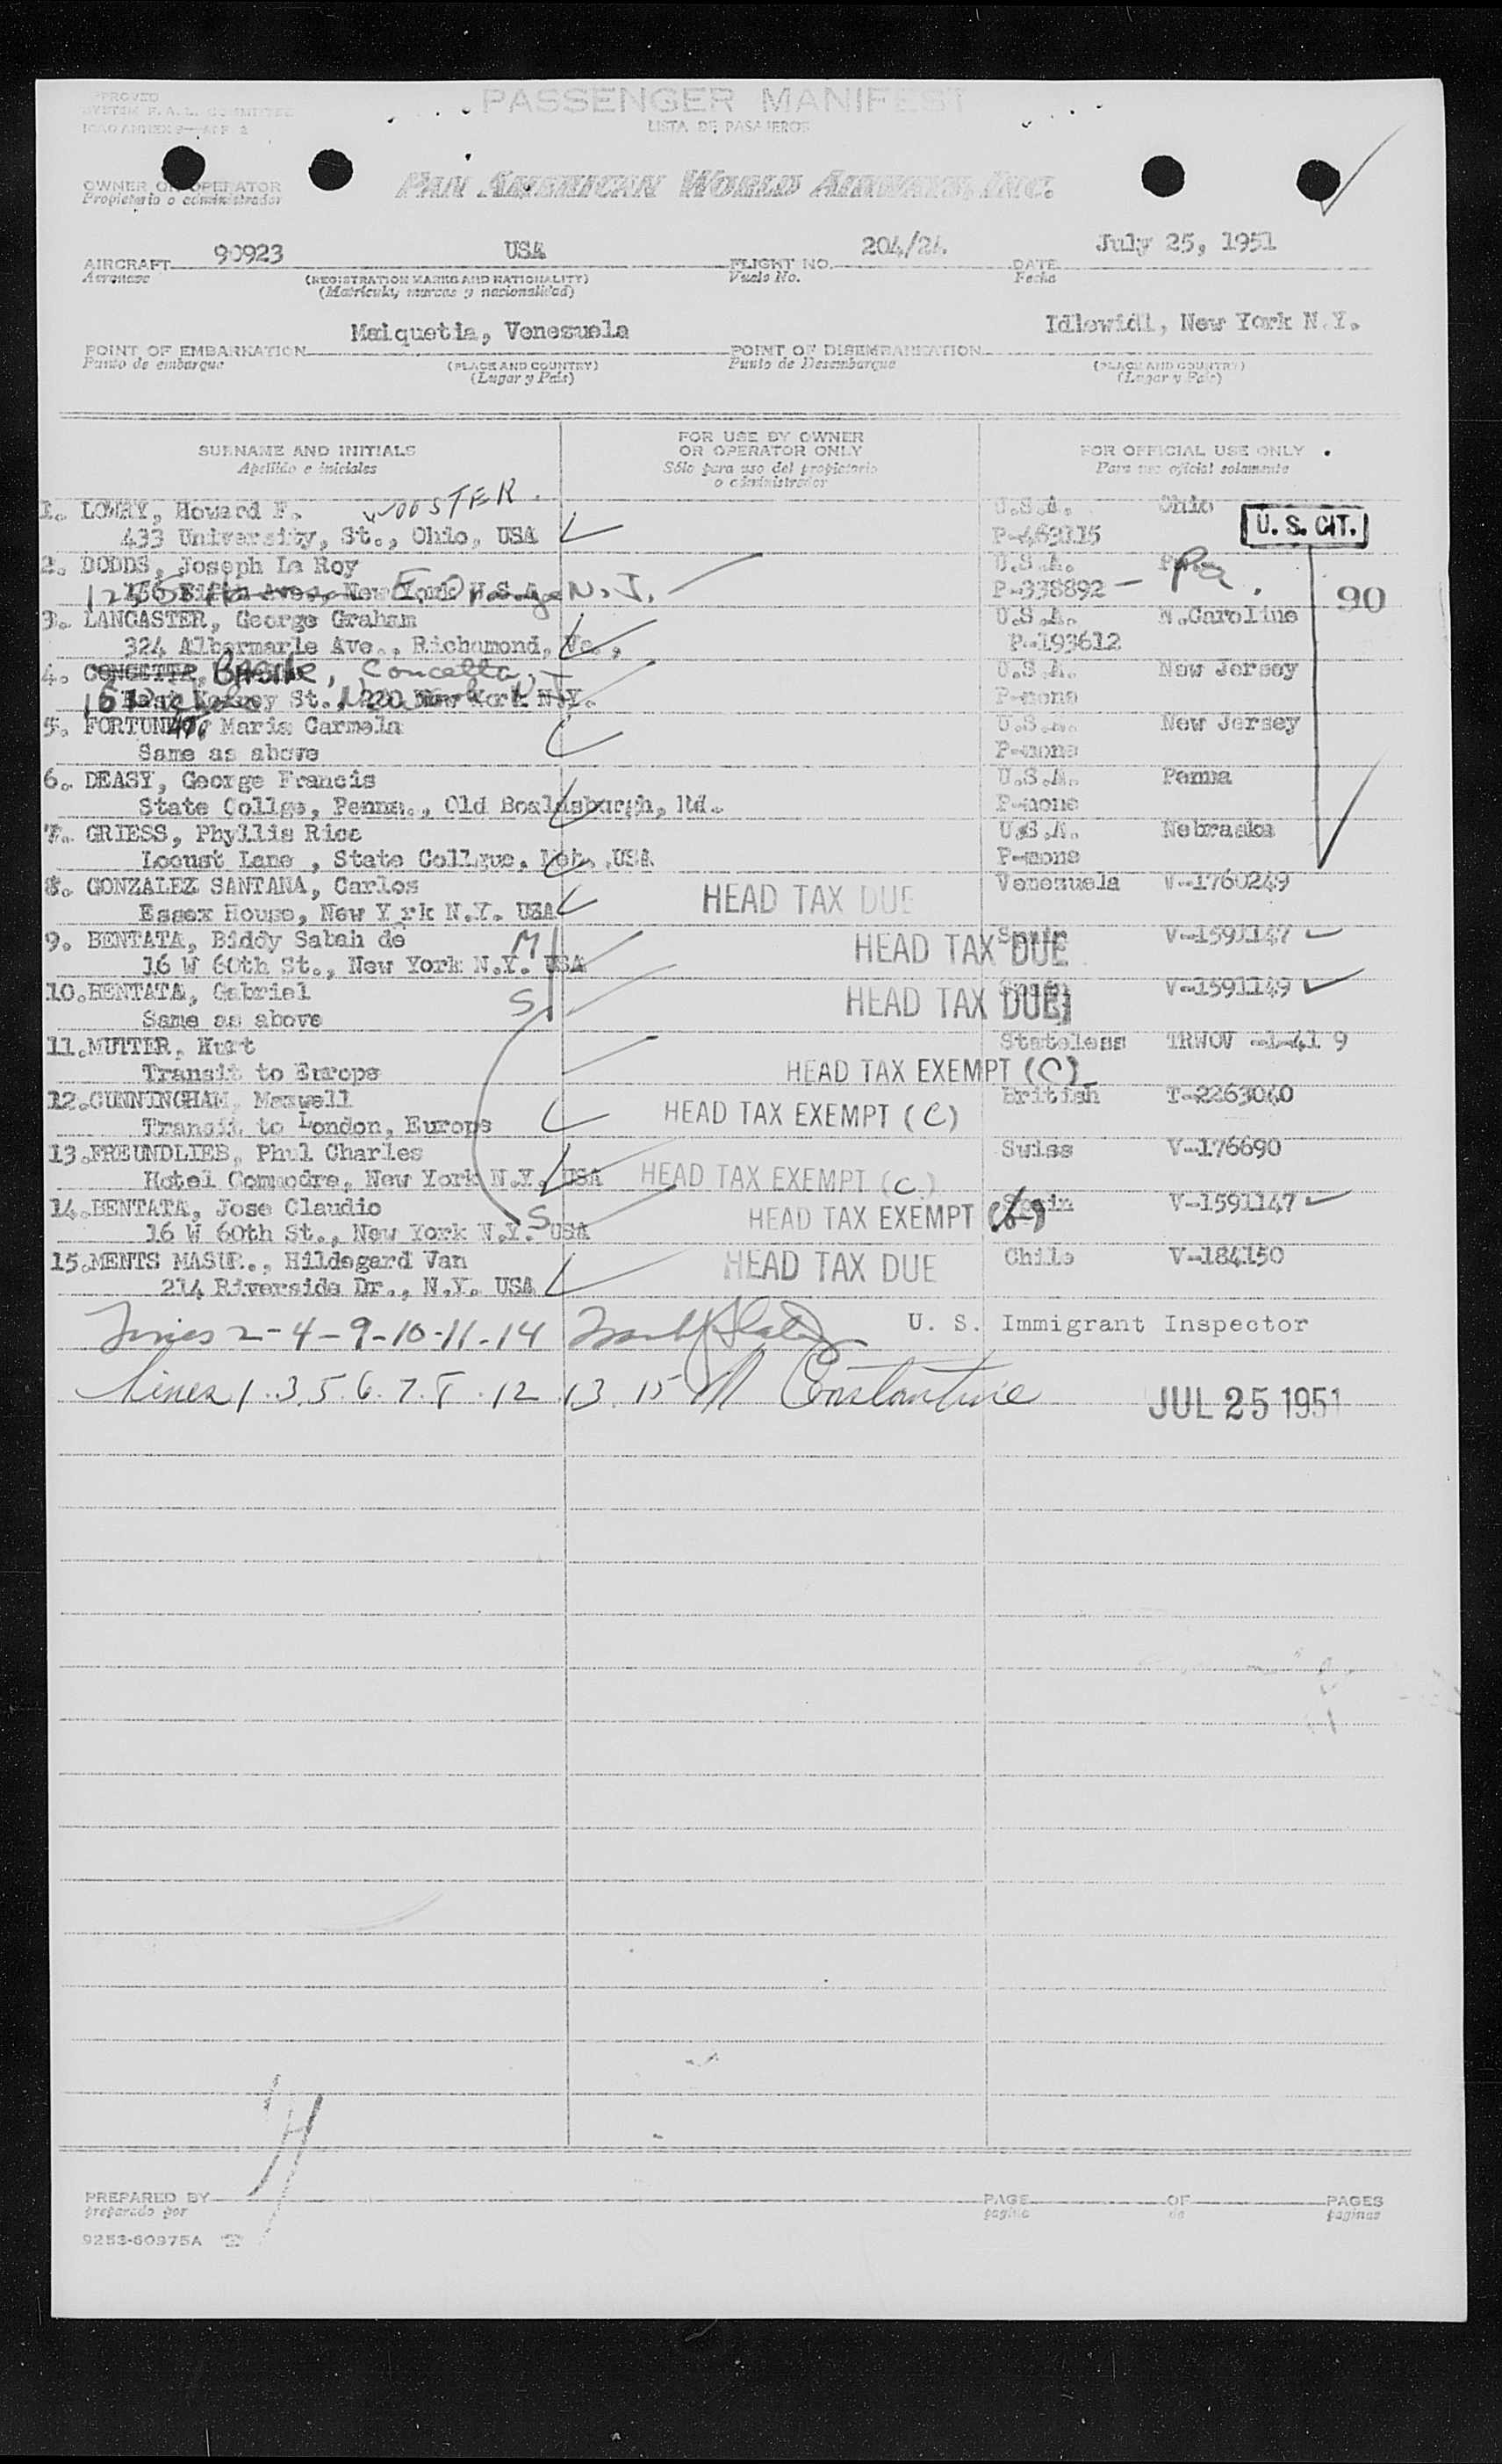 APPROVED
SYSTEM F.A.L. COMMITTEE
ICAO ANNEX 9—APP 2
PASSENGER MANIFEST
LISTA DE PASAJEROS
OWNER OR OPERATOR
Propietario o administrador
PAN AMERICAN WORLD AIRWAYS, INC.
AIRCRAFT 90923 USA FLIGHT NO. 204/24 DATE July 25, 1951
Aeronave (REGISTRATION MARKS AND NATIONALITY) Vuelo No. Fecha
(Matricula, marcas y nacionalidad)
POINT OF EMBARKATION Maiquetia, Venezuela POINT OF DISEMBARKATION Idlewidl, New York N.Y.
Punto de embarque (PLACE AND COUNTRY) Punto de Desembarque (PLACE AND COUNTRY)
(Lugar y País) (Lugar y País)
SURNAME AND INITIALS FOR USE BY OWNER OR OPERATOR ONLY FOR OFFICIAL USE ONLY
Apellido e iniciales Sólo para uso del propietario o administrador Para uso oficial solamente
1. LOWRY, Howard F. WOOSTER. U.S.A. Ohio
433 University, St., Ohio, USA P-463115 U. S. CIT.
2. DODDS, Joseph La Roy U.S.A. Pa.
New York U.S.A. N.J. P-338892 — Pa. 90
3. LANCASTER, George Graham U.S.A. N.Caroline
324 Albermarle Ave., Richamond, Va., P-193612
4. CONCETTA, Concetta, U.S.A. New Jersey
St., New York N.Y. P-none
5. FORTUNATO, Maria Carmela U.S.A. New Jersey
Same as above P-none
6. DEASY, George Francis U.S.A. Penna
State Collge, Penna., Old Boaldsburgh, Rd. P-none
7. GRIESS, Phyllis Rice U.S.A. Nebraska
Locust Lane , State Collgue, USA P-none
8. GONZALEZ SANTANA, Carlos HEAD TAX DUE Venezuela V-1760249
Essex House, New Y rk N.Y. USA
9. BENTATA, Biddy Sabah de M HEAD TAX DUE Spain V-1591147
16 W 60th St., New York N.Y. USA
10. BENTATA, Gabriel S HEAD TAX DUE Spain V-1591149
Same as above
11. MUTTER, Kurt Stateless TRWOV -1-41 9
Transit to Europe HEAD TAX EXEMPT (C)
12. CUNNINGHAM, Maxwell HEAD TAX EXEMPT (C) British T-2263040
Transit to London, Europe
13. FREUNDLIEB, Phul Charles Suiss V-176690
Hotel Commodre, New York N.Y. USA HEAD TAX EXEMPT (C)
14. BENTATA, Jose Claudio S HEAD TAX EXEMPT Spain V-1591147
16 W 60th St., New York N.Y. USA
15. MENTS MASUR., Hildegard Van HEAD TAX DUE Chile V-184150
214 Riverside Dr., N.Y. USA
Lines 2-4-9-10-11-14 U. S. Immigrant Inspector
Lines 1. 3. 5. 6. 7. 8. 12 13. 15 M Constantine JUL 25 1951
PREPARED BY PAGE OF PAGES
preparado por pagina de paginas
9253-60975A